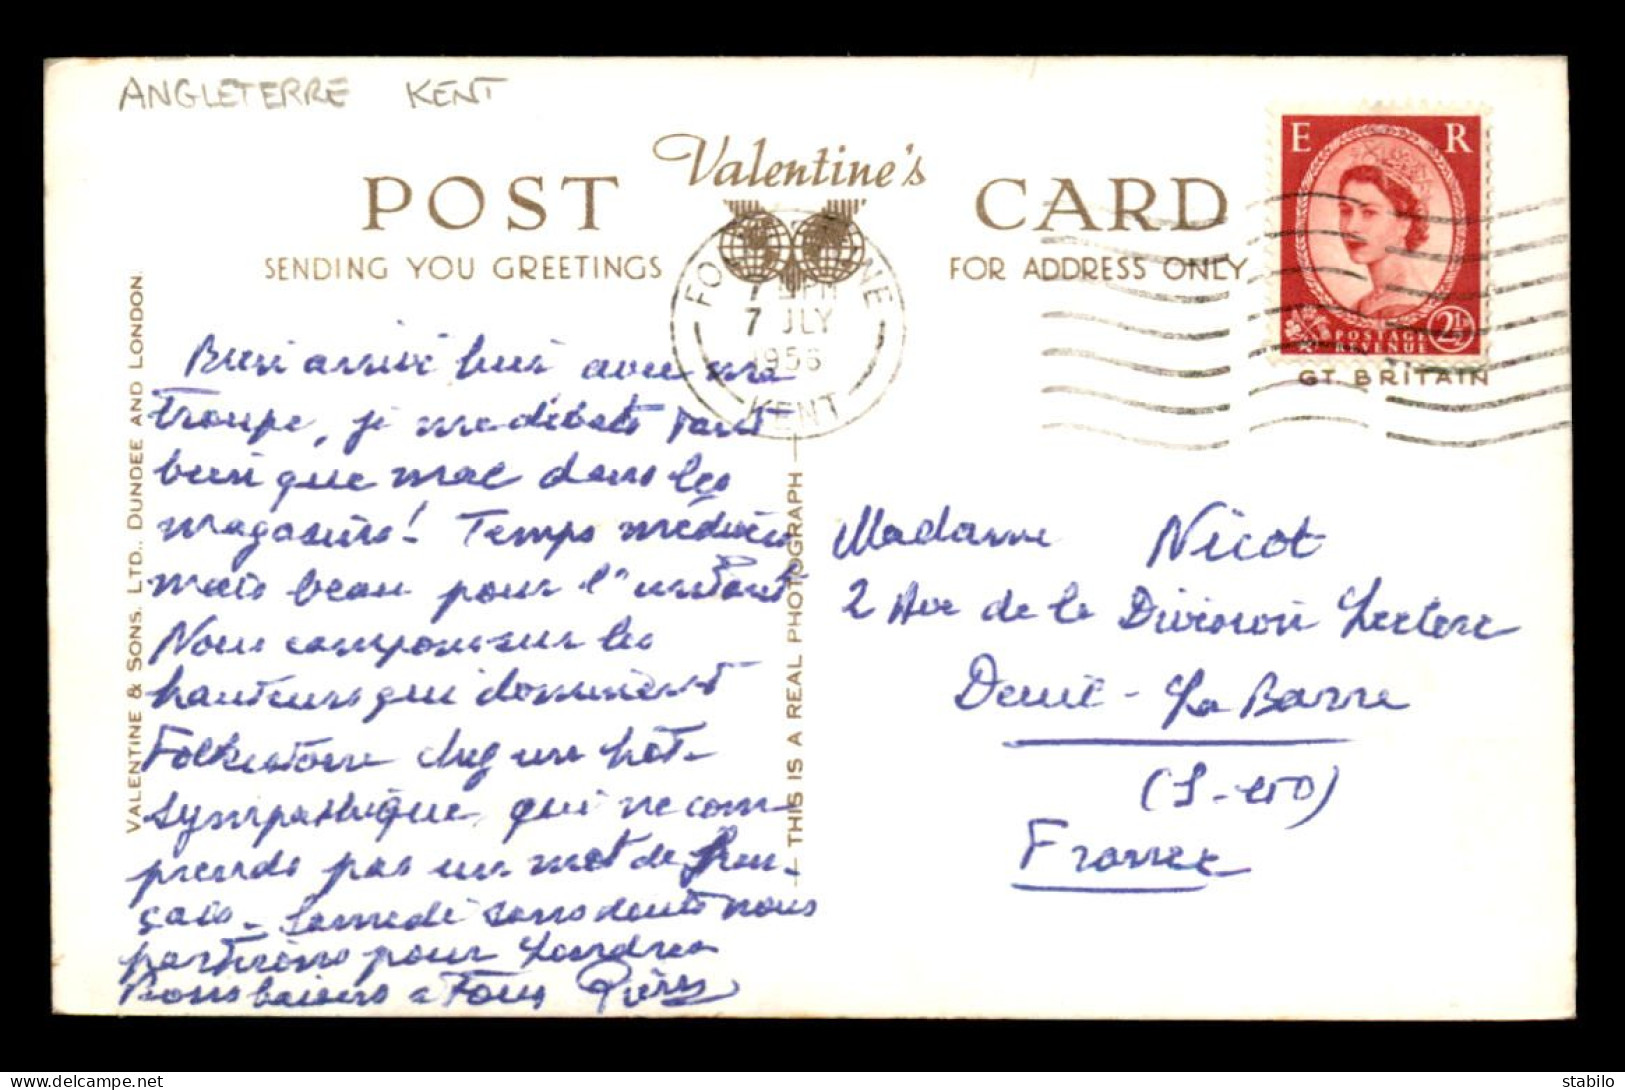 ANGLETERRE KENT
Valentine's
POST CARD
SENDING YOU GREETINGS
FOR ADDRESS ONLY
E R
POSTAGE
REVENUE
2½
GT. BRITAIN
7 JLY
1956
KENT
VALENTINE & SONS. LTD., DUNDEE AND LONDON.
THIS IS A REAL PHOTOGRAPH
Bien arrivé hier avec ma
troupe, je me débats tant
bien que mal dans les
magasins! Temps médiocre
mais beau pour l'instant
Nous campons sur les
hauteurs qui dominent
Folkestone chez un hôte
sympathique qui ne com-
prends pas un mot de fran-
çais - Samedi sans doute nous
partirons pour Londres
Bons baisers a Tous Pierre
Madame Nicot
2 Ave de la Division Leclerc
Deuil - La Barre
(S-et-O)
France
stabilo
delcampe.net